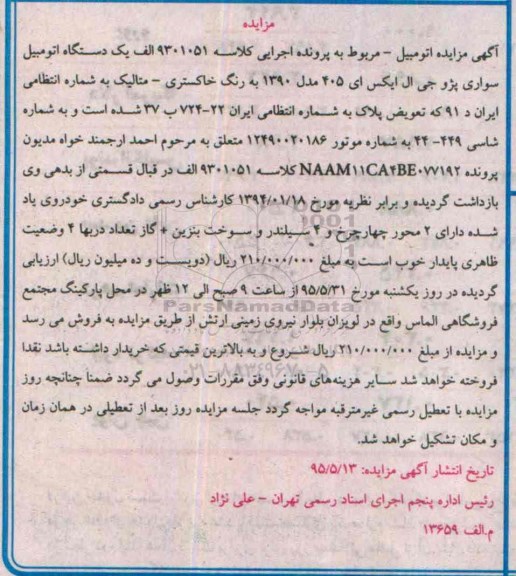 مزایده
آگهی مزایده اتومبیل - مربوط به پرونده اجرایی کلاسه ۹۳۰۱۰۵۱ الف یک دستگاه اتومبیل
سواری پژو جی ال ایکس ای ۴۰۵ مدل ۱۳۹۰ به رنگ خاکستری - متالیک به شماره انتظامی
ایران د ۹۱ که تعویض پلاک به شماره انتظامی ایران ۲۲-۷۲۴ ب ۳۷ شده است و به شماره
شاسی ۴۴۹- ۴۴ به شماره موتور ۱۲۴۹۰۰۲۰۱۸۶ متعلق به مرحوم احمد ارجمند خواه مدیون
پرونده NAAM۱۱CA۴BE۰۷۷۱۹۲ کلاسه ۹۳۰۱۰۵۱ الف در قبال قسمتی از بدهی وی
بازداشت گردیده و برابر نظریه مورخ ۱۳۹۴/۰۱/۱۸ کارشناس رسمی دادگستری خودروی یاد
شده دارای ۲ محور چهارچرخ و ۴ سیلندر و سوخت بنزین + گاز تعداد دربها ۴ وضعیت
ظاهری پایدار خوب است به مبلغ ۲۱۰/۰۰۰/۰۰۰ ریال (دویست و ده میلیون ریال) ارزیابی
گردیده در روز یکشنبه مورخ ۹۵/۵/۳۱ از ساعت ۹ صبح الی ۱۲ ظهر در محل پارکینگ مجتمع
ParsNamadData
فروشگاهی الماس واقع در لویزان بلوار نیروی زمینی ارتش از طریق مزایده به فروش می رسد
و مزایده از مبلغ ۲۱۰/۰۰۰/۰۰۰ ریال شروع و به بالاترین قیمتی که خریدار داشته باشد نقدا
فروخته خواهد شد سایر هزینه‌های قانونی وفق مقررات وصول می گردد ضمنا چنانچه روز
مزایده با تعطیل رسمی غیرمترقبه مواجه گردد جلسه مزایده روز بعد از تعطیلی در همان زمان
و مکان تشکیل خواهد شد.
تاریخ انتشار آگهی مزایده: ۹۵/۵/۱۳
رئیس اداره پنجم اجرای اسناد رسمی تهران - علی نژاد
م.الف ۱۳۶۵۹